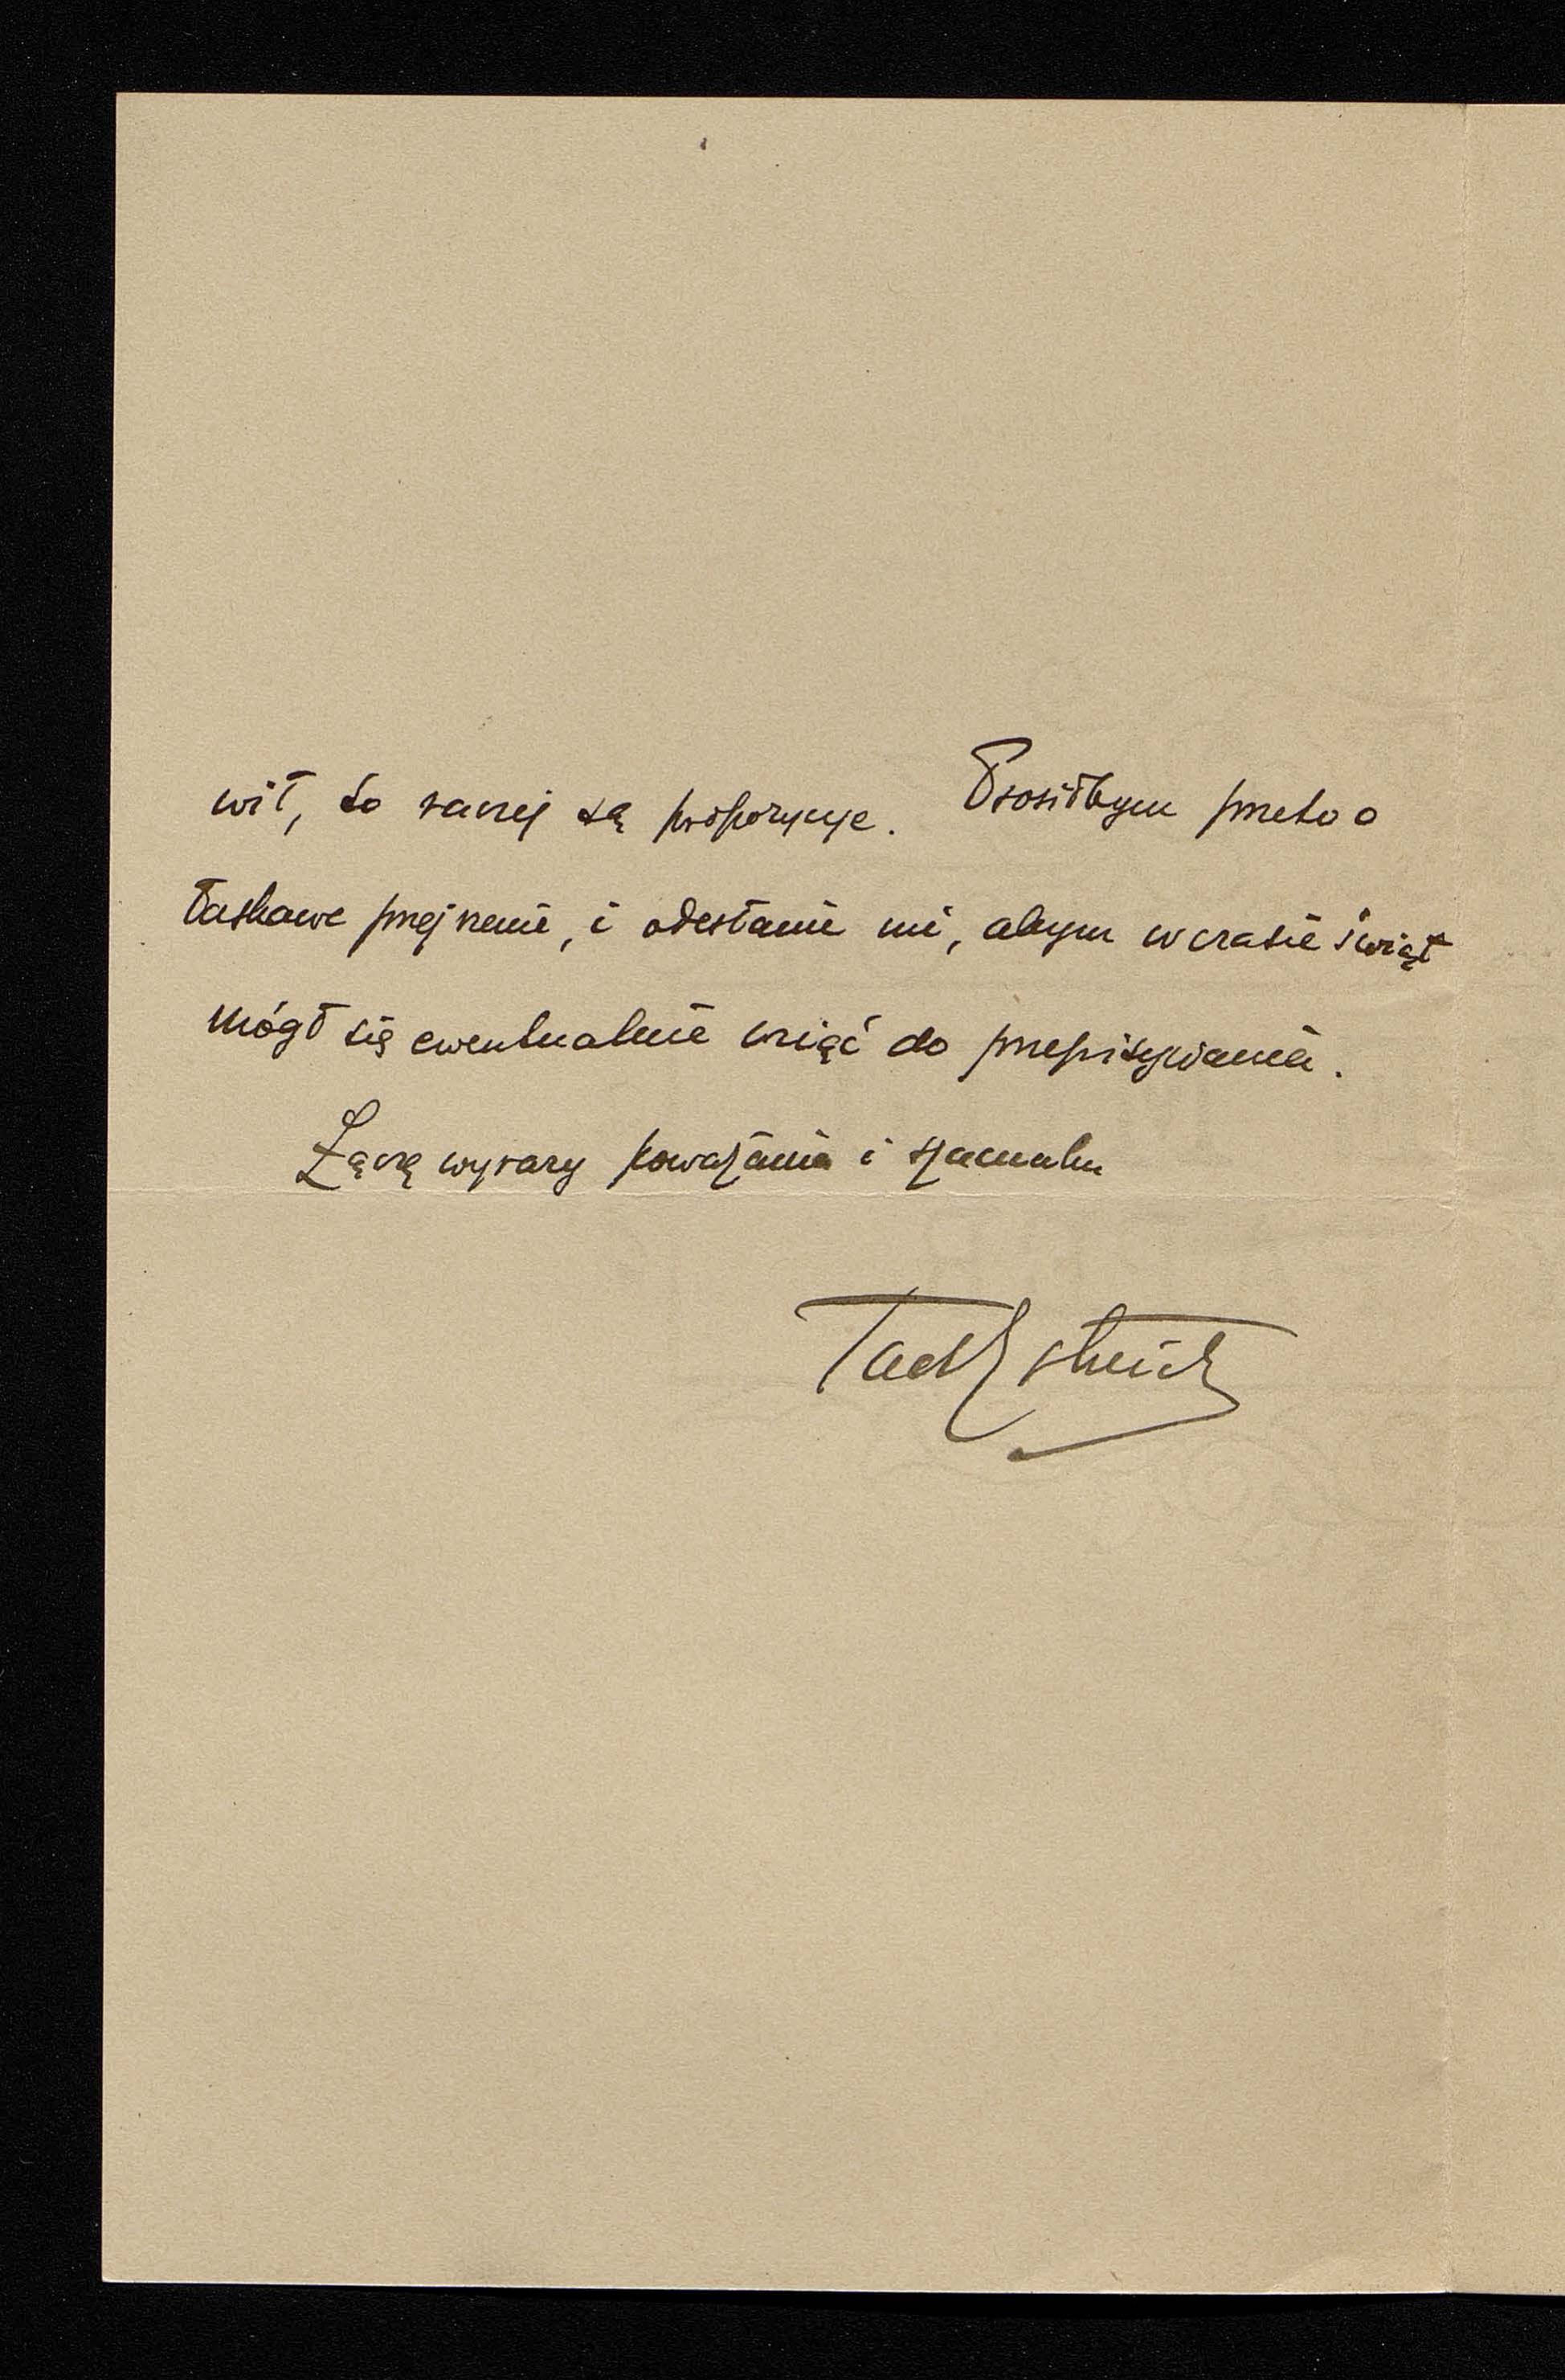 wił, to raczej są propozycje. Prosiłbym przeto o
łaskawe przejrzenie, i odesłanie mi, abym w czasie świąt
mógł się ewentualnie wziąć do przepisywania.
Łączę wyrazy poważania i szacunku
Tad